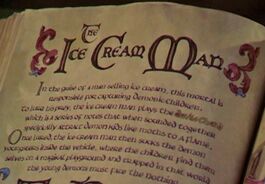 The
Ice Cream Man
In the guise of a man selling ice cream, this mortal is
responsible for capturing demonic children.
To lure its prey, the ice cream man plays the
which is a series of notes that when sounded together
specifically attract demon kids like moths to a flame.
Once lured, the ice cream man then sucks the demon
youngsters inside the vehicle, where the children find themselves
on a magical playground and trapped in that world
the young demons must face the Nothing